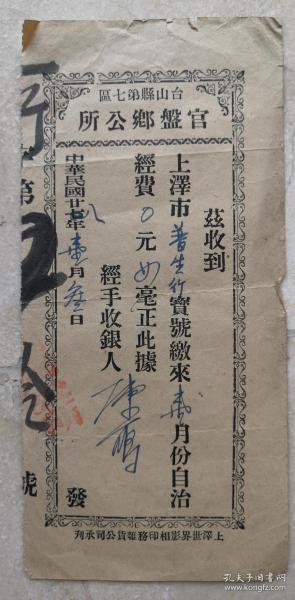 台山縣第七區
官盤鄉公所
茲收到
上澤市普生行寶號繳來 月份自治
經費0元 毫正此據
經手收銀人
發
中華民國廿 年 月叁日
第
號
上澤世界影相印務雜貨公司承刊
孔夫子旧书网